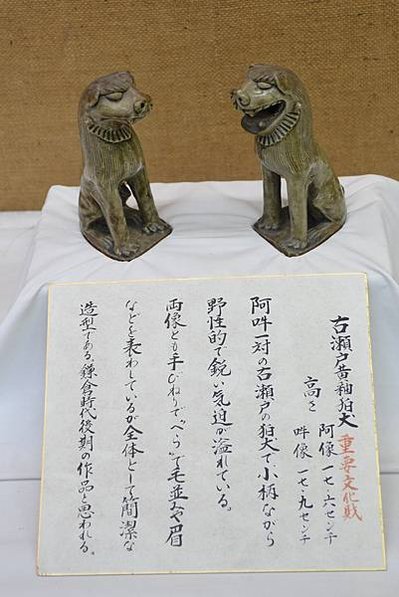 古瀬戸黄釉狛犬 重要文化財
高さ 阿像 一七・六センチ
吽像 一七・九センチ
阿吽一対の古瀬戸の狛犬で小柄ながら
野性的で鋭い気迫が溢れている。
両像とも手びねりで“へら”で毛並みや眉
などを表わしているが全体として簡潔な
造型である。鎌倉時代後期の作品と思われる。